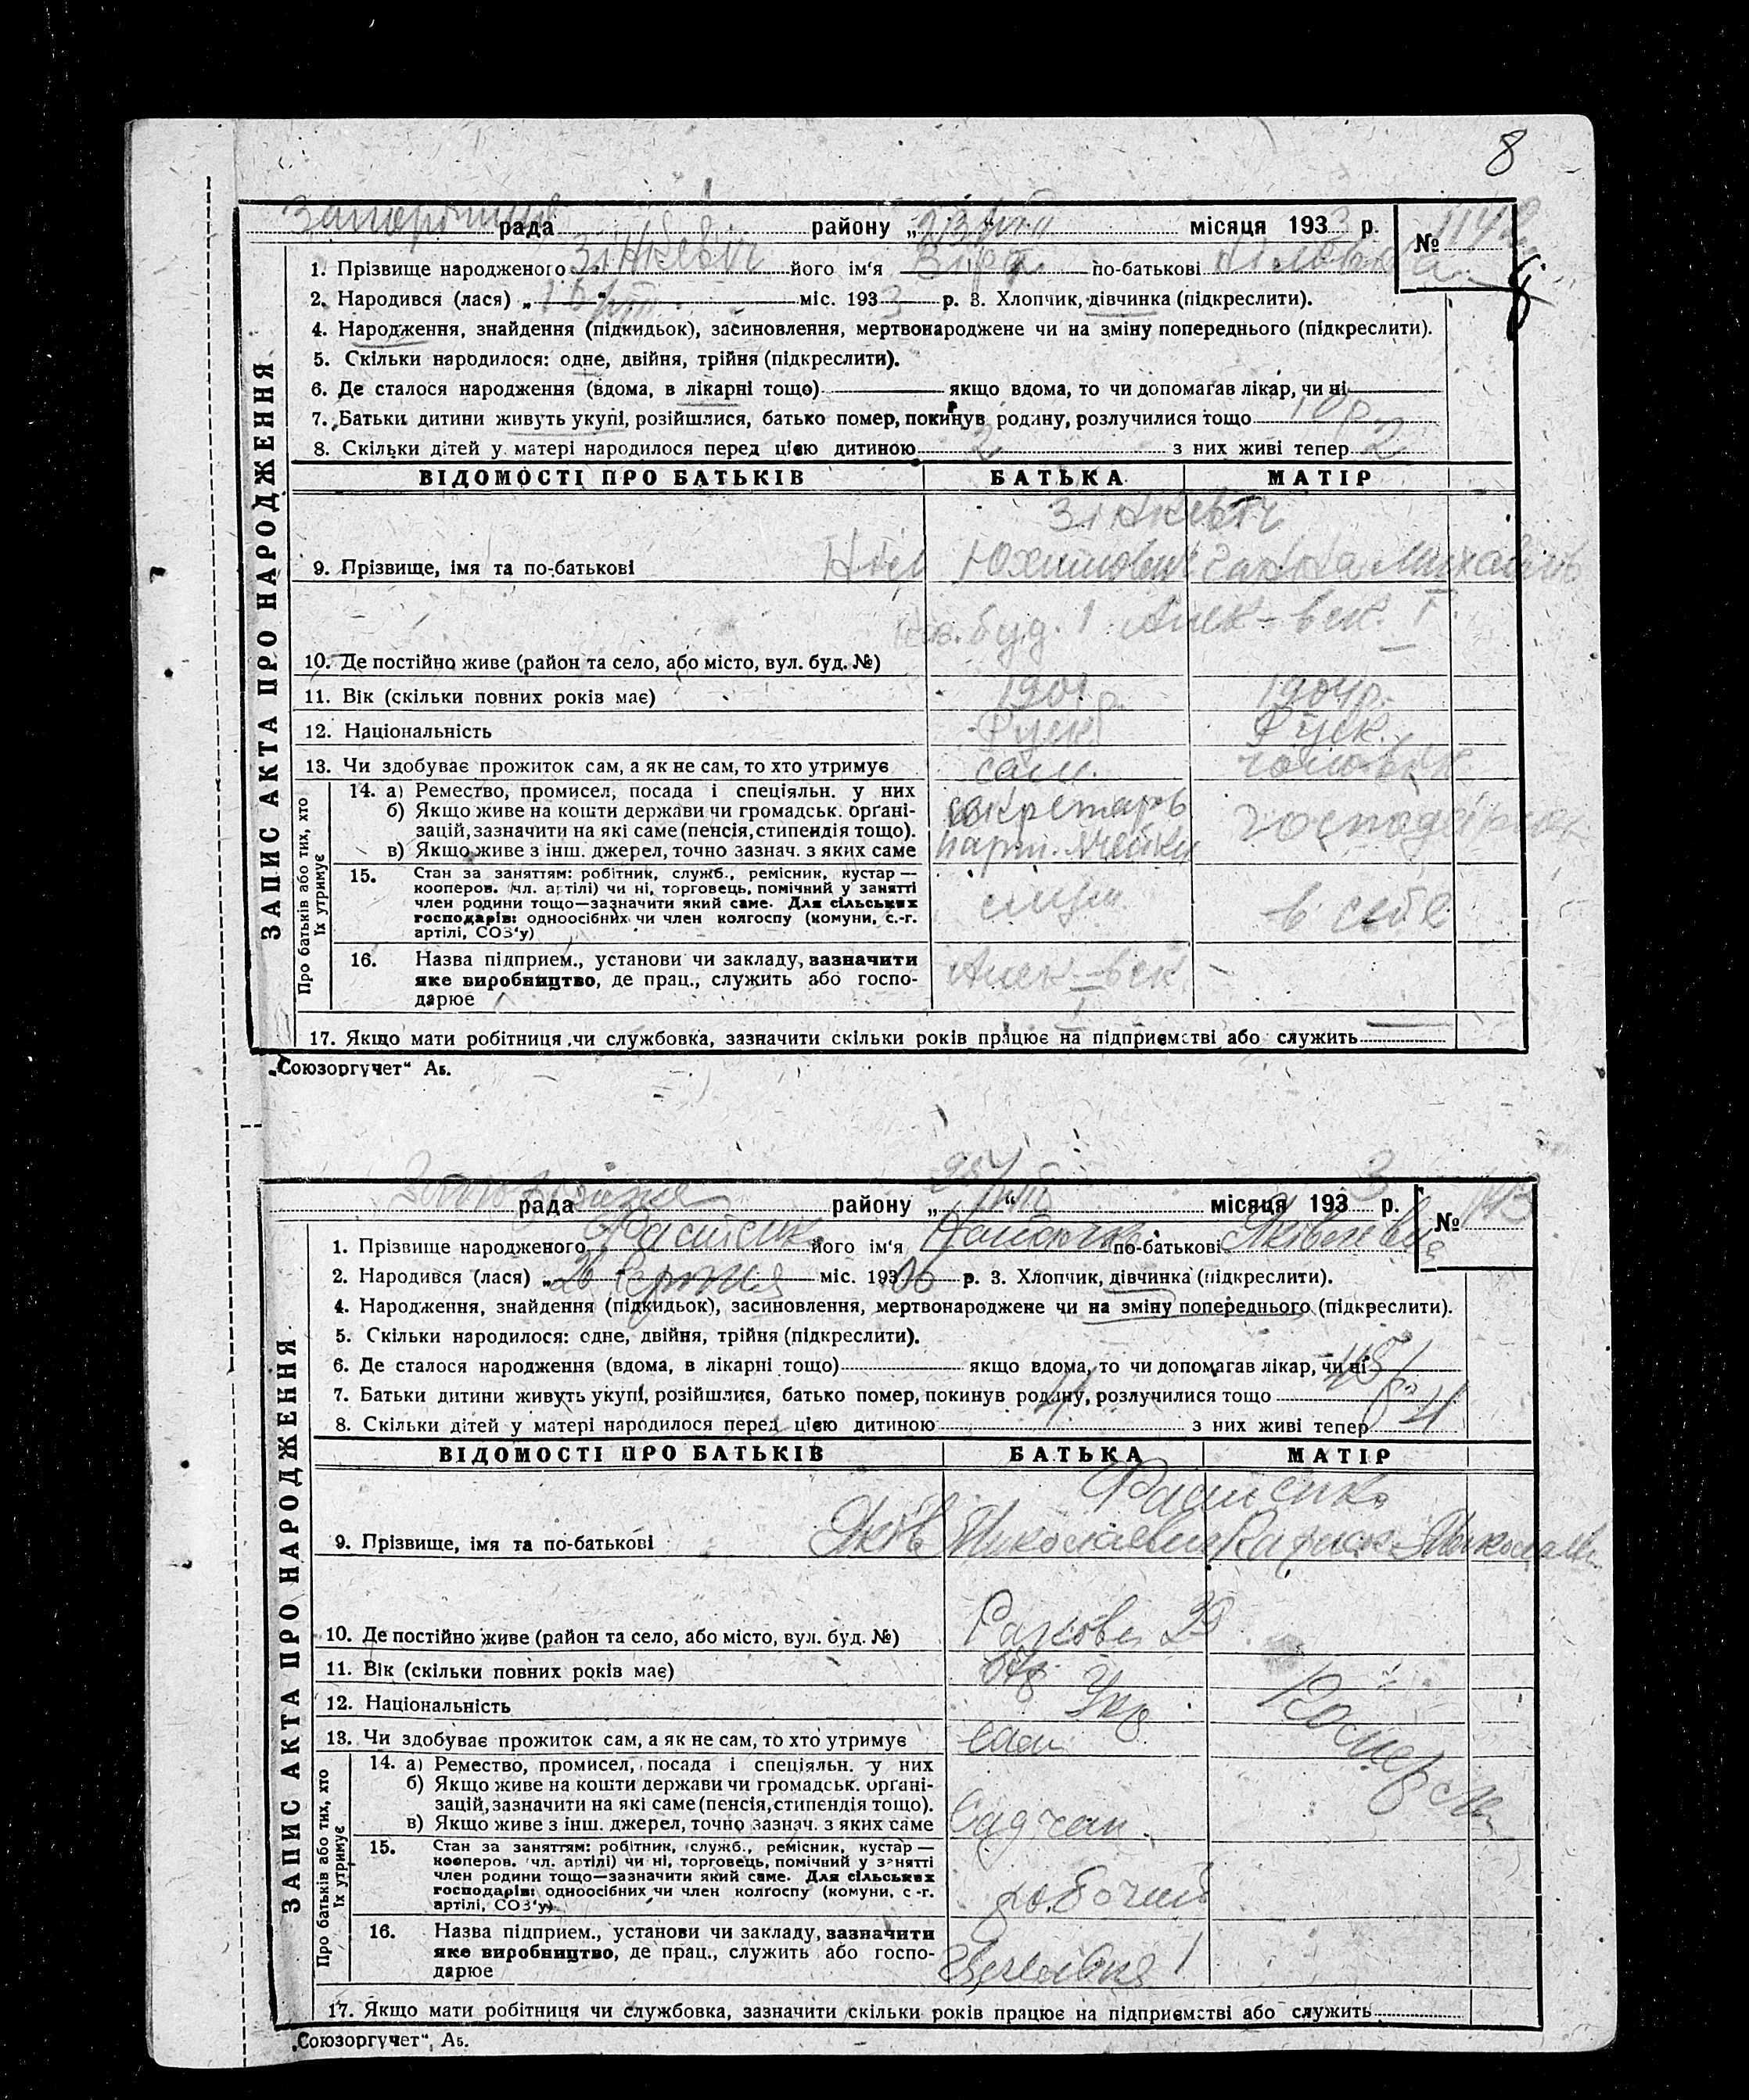 8
рада району „23/VIII“ місяця 1933 р. №
1. Прізвище народженого Зінкевіч його ім‘я Віра по-батькові
2. Народився (лася) „ “ міс. 1933 р. 3. Хлопчик, дівчинка (підкреслити).
4. Народження, знайдення (підкидьок), засиновлення, мертвонароджене чи на зміну попереднього (підкреслити).
5. Скільки народилося: одне, двійня, трійня (підкреслити).
6. Де сталося народження (вдома, в лікарні тощо) якщо вдома, то чи допомагав лікар, чи ні
7. Батьки дитини живуть укупі, розійшлися, батько помер, покинув родину, розлучилися тощо
8. Скільки дітей у матері народилося перед цією дитиною 2 з них живі тепер 2
ЗАПИС АКТА ПРО НАРОДЖЕННЯ
ВІДОМОСТІ ПРО БАТЬКІВ БАТЬКА МАТІР
Зінкевіч
9. Прізвище, імя та по-батькові Юхимович Ганна
буд. 1
10. Де постійно живе (район та село, або місто, вул. буд. №)
11. Вік (скільки повних років має) 1901 1904р.
12. Національність Руск. Руск.
13. Чи здобуває прожиток сам, а як не сам, то хто утримує сам. чоловік
Про батьків або тих, хто їх утримує
14. а) Ремество, промисел, посада і спеціяльн. у них
б) Якщо живе на кошти держави чи громадськ. органі-
зацій, зазначити на які саме (пенсія, стипендія тощо).
в) Якщо живе з інш. джерел, точно зазнач. з яких саме
секретарь
парт. ячейки
15. Стан за заняттям: робітник, служб., ремісник, кустар —
кооперов. (чл. артілі) чи ні, торговець, помічний у занятті
член родини тощо—зазначити який саме. Для сільських
господарів: одноосібних чи член колгоспу (комуни, с.-г.
артілі, СОЗ‘у)
служ. в себе
16. Назва підприєм., установи чи закладу, зазначити
яке виробництво, де прац., служить або госпо-
дарює
17. Якщо мати робітниця чи службовка, зазначити скільки років працює на підприємстві або служить
„Союзоргучет“ Аб.
рада району „ “ місяця 1933 р. №
1. Прізвище народженого його ім‘я по-батькові Яківлевна
2. Народився (лася) „26 Серпня міс. 1906 р. 3. Хлопчик, дівчинка (підкреслити).
4. Народження, знайдення (підкидьок), засиновлення, мертвонароджене чи на зміну попереднього (підкреслити).
5. Скільки народилося: одне, двійня, трійня (підкреслити).
6. Де сталося народження (вдома, в лікарні тощо) якщо вдома, то чи допомагав лікар, чи ні
7. Батьки дитини живуть укупі, розійшлися, батько помер, покинув родину, розлучилися тощо
8. Скільки дітей у матері народилося перед цією дитиною 4 з них живі тепер 4
ЗАПИС АКТА ПРО НАРОДЖЕННЯ
ВІДОМОСТІ ПРО БАТЬКІВ БАТЬКА МАТІР
9. Прізвище, імя та по-батькові Яків Николаевич
10. Де постійно живе (район та село, або місто, вул. буд. №)
11. Вік (скільки повних років має)
12. Національність Укр
13. Чи здобуває прожиток сам, а як не сам, то хто утримує сам
Про батьків або тих, хто їх утримує
14. а) Ремество, промисел, посада і спеціяльн. у них
б) Якщо живе на кошти держави чи громадськ. органі-
зацій, зазначити на які саме (пенсія, стипендія тощо).
в) Якщо живе з інш. джерел, точно зазнач. з яких саме
15. Стан за заняттям: робітник, служб., ремісник, кустар —
кооперов. (чл. артілі) чи ні, торговець, помічний у занятті
член родини тощо—зазначити який саме. Для сільських
господарів: одноосібних чи член колгоспу (комуни, с.-г.
артілі, СОЗ‘у)
робочий
16. Назва підприєм., установи чи закладу, зазначити
яке виробництво, де прац., служить або госпо-
дарює
17. Якщо мати робітниця чи службовка, зазначити скільки років працює на підприємстві або служить
„Союзоргучет“, Аб.